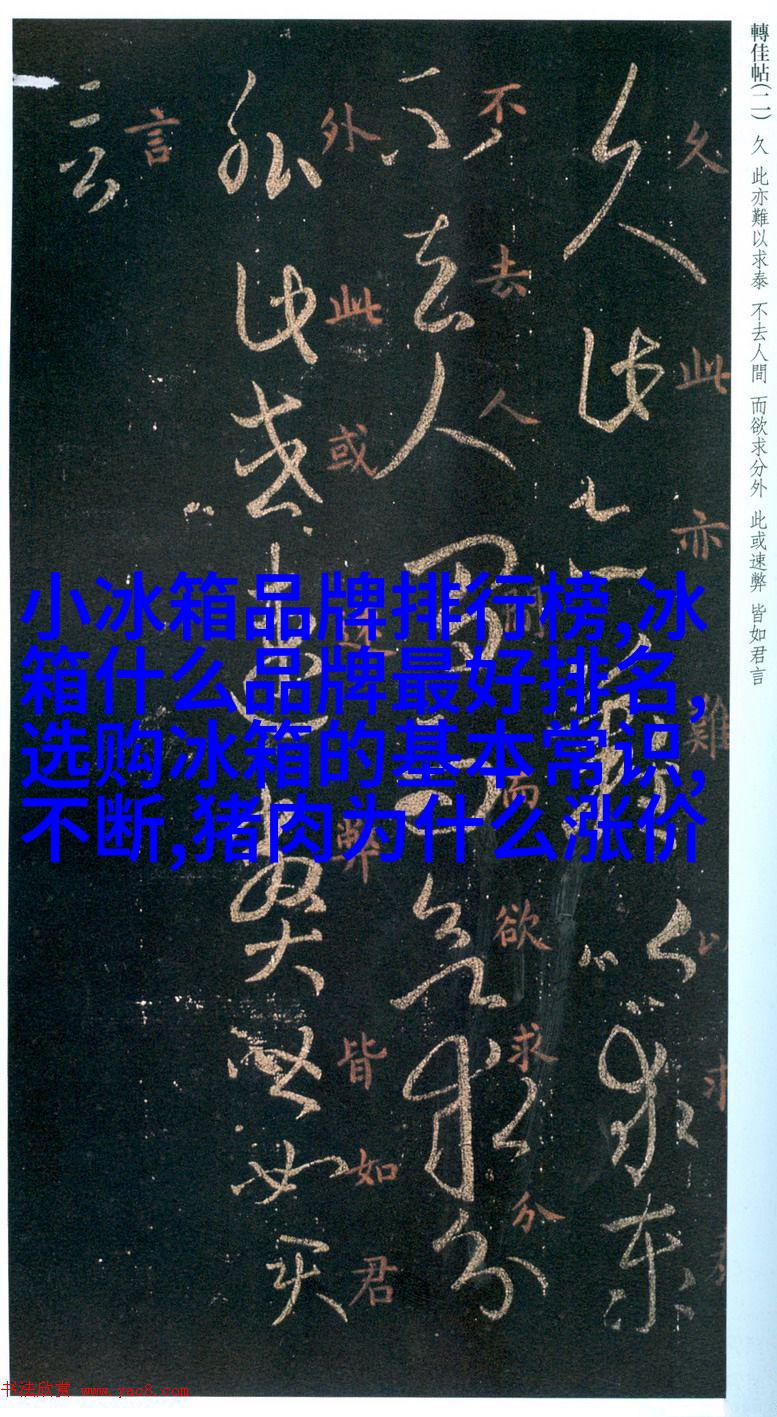 轉佳帖(二) 久 此亦難以求泰 不去人間 而欲求分外 此或速弊 皆如君言
久此亦難以求
不去人而欲求分
外此或速弊皆如君
言
小冰箱品牌排行榜,冰
箱什么品牌最好排名,
选购冰箱的基本常识,
不断,猪肉为什么涨价
书法欣赏 www.yac8.com